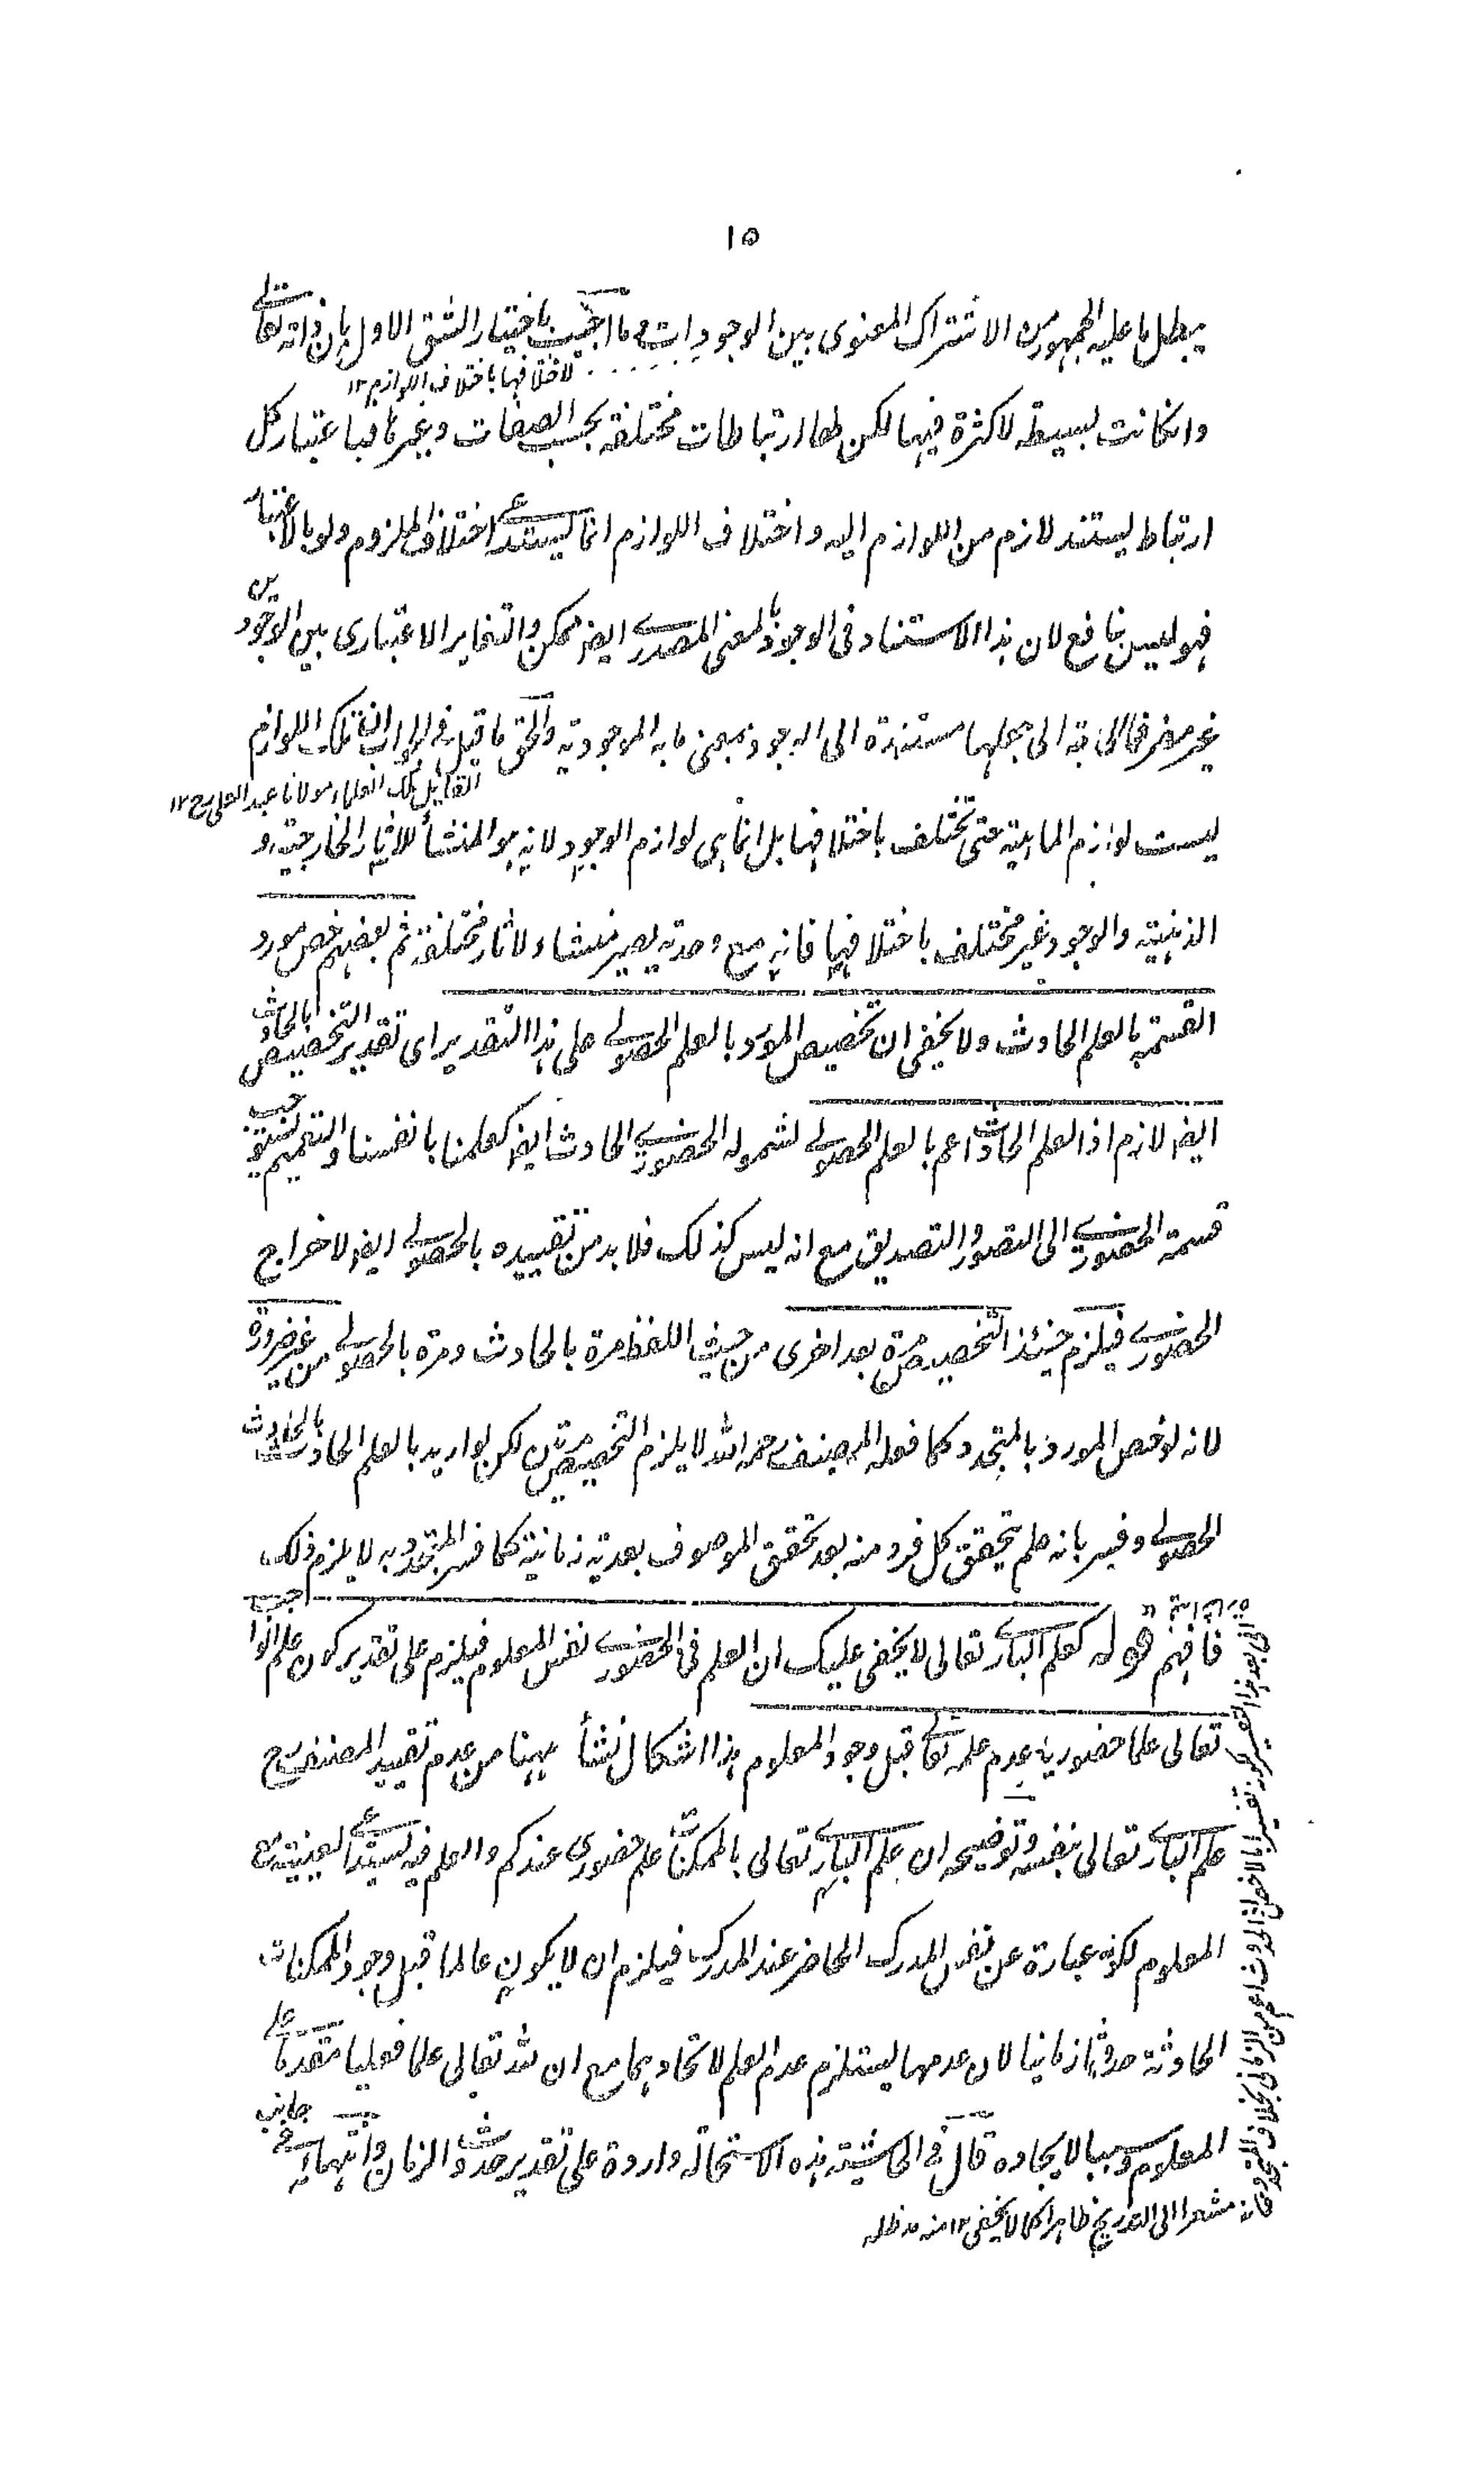 ١٥
يبطل ما عليه الجمهور من الاشتراك المعنوى بين الوجودات وما اجيب باختيار الشق الاول بان ذاته تعالى
لاختلافها باختلاف اللوازم ١٢
وانكانت بسيطة لا كثرة فيها لكن لها ارتباطات مختلفة بحسب الصفات وغيرها فباعتبار كل
ارتباط يستند لازم من اللوازم اليه واختلاف اللوازم انما يستدعى اختلاف الملزوم ولو بالاعتبار
فهو ليس بنافع لان هذا الاستناد فى الوجود بالمعنى المصدرى ايضا ممكن والتغاير الاعتبارى بين الوجودين
غير مضر فما الحاجة الى جعلها مستندة الى الوجود بمعنى ما به الموجودية والحق ما قيل فى الجواب ان تلك اللوازم
القائل ملك العلماء مولانا عبد العلى رح ١٢
ليست لوازم الماهية حتى تختلف باختلافها بل انما هى لوازم الوجود لانه هو المنشأ للاثار الخارجية و
الذهنية والوجود غير مختلف باختلافها فانه مع وحدته يصير منشاء لاثار مختلفة ثم بعضهم خص مورد
القسمة بالعلم الحادث ولا يخفى ان تخصيص المورد بالعلم الحصولى على هذا التقدير اى تقدير التخصيص بالحادث
ايضا لازم اذ العلم الحادث اعم بالعلم الحصولى لشموله الحضورى الحادث ايضا كعلمنا بانفسنا والتعميم يستوجب
قسمة الحضورى الى التصور والتصديق مع انه ليس كذلك فلا بد من تقييده بالحصولى ايضا لاخراج
الحضورى فيلزم حينئذ التخصيص مرة بعد اخرى من حيث اللفظ مرة بالحادث ومرة بالحصولى من غير ضرورة
لانه لو خص المورد بالمتجدد كما فعله المصنف رحمه الله لا يلزم التخصيص مرتين لكن لو اريد بالعلم الحادث الحادث
الحصولى وفسر بانه علم يتحقق كل فرد منه بعد تحقق الموصوف بعدية زمانية كما فسر المتجدد به لا يلزم ذلك
فافهم قوله كعلم البارى تعالى لا يخفى عليك ان العلم فى الحضورى نفس المعلوم فيلزم على تقدير كون علم الواجب
تعالى علما حضوريا عدم علمه تعالى قبل وجود المعلوم هذا اشكال نشأ ههنا من عدم تقييد المصنف رح
علم البارى تعالى بنفسه وتوضيحه ان علم البارى تعالى بالممكنات علم حضورى عندكم والعلم فيه يستدعى العينية مع
المعلوم لكونه عبارة عن نفس المدرك الحاضر عند المدرك فيلزم ان لا يكون عالما قبل وجود الممكنات
الحادثة حدوثا زمانيا لان عدمها يستلزم عدم العلم لاتحادهما مع ان لله تعالى علما فعليا متقدما على
المعلوم وسببا لايجاده قال فى الحاشية هذه الاستحالة واردة على تقدير حدوث الزمان وانتهائه فى جانب
مشعرا الى التدريج ظاهرا كما لا يخفى ١٢ منه مد ظله